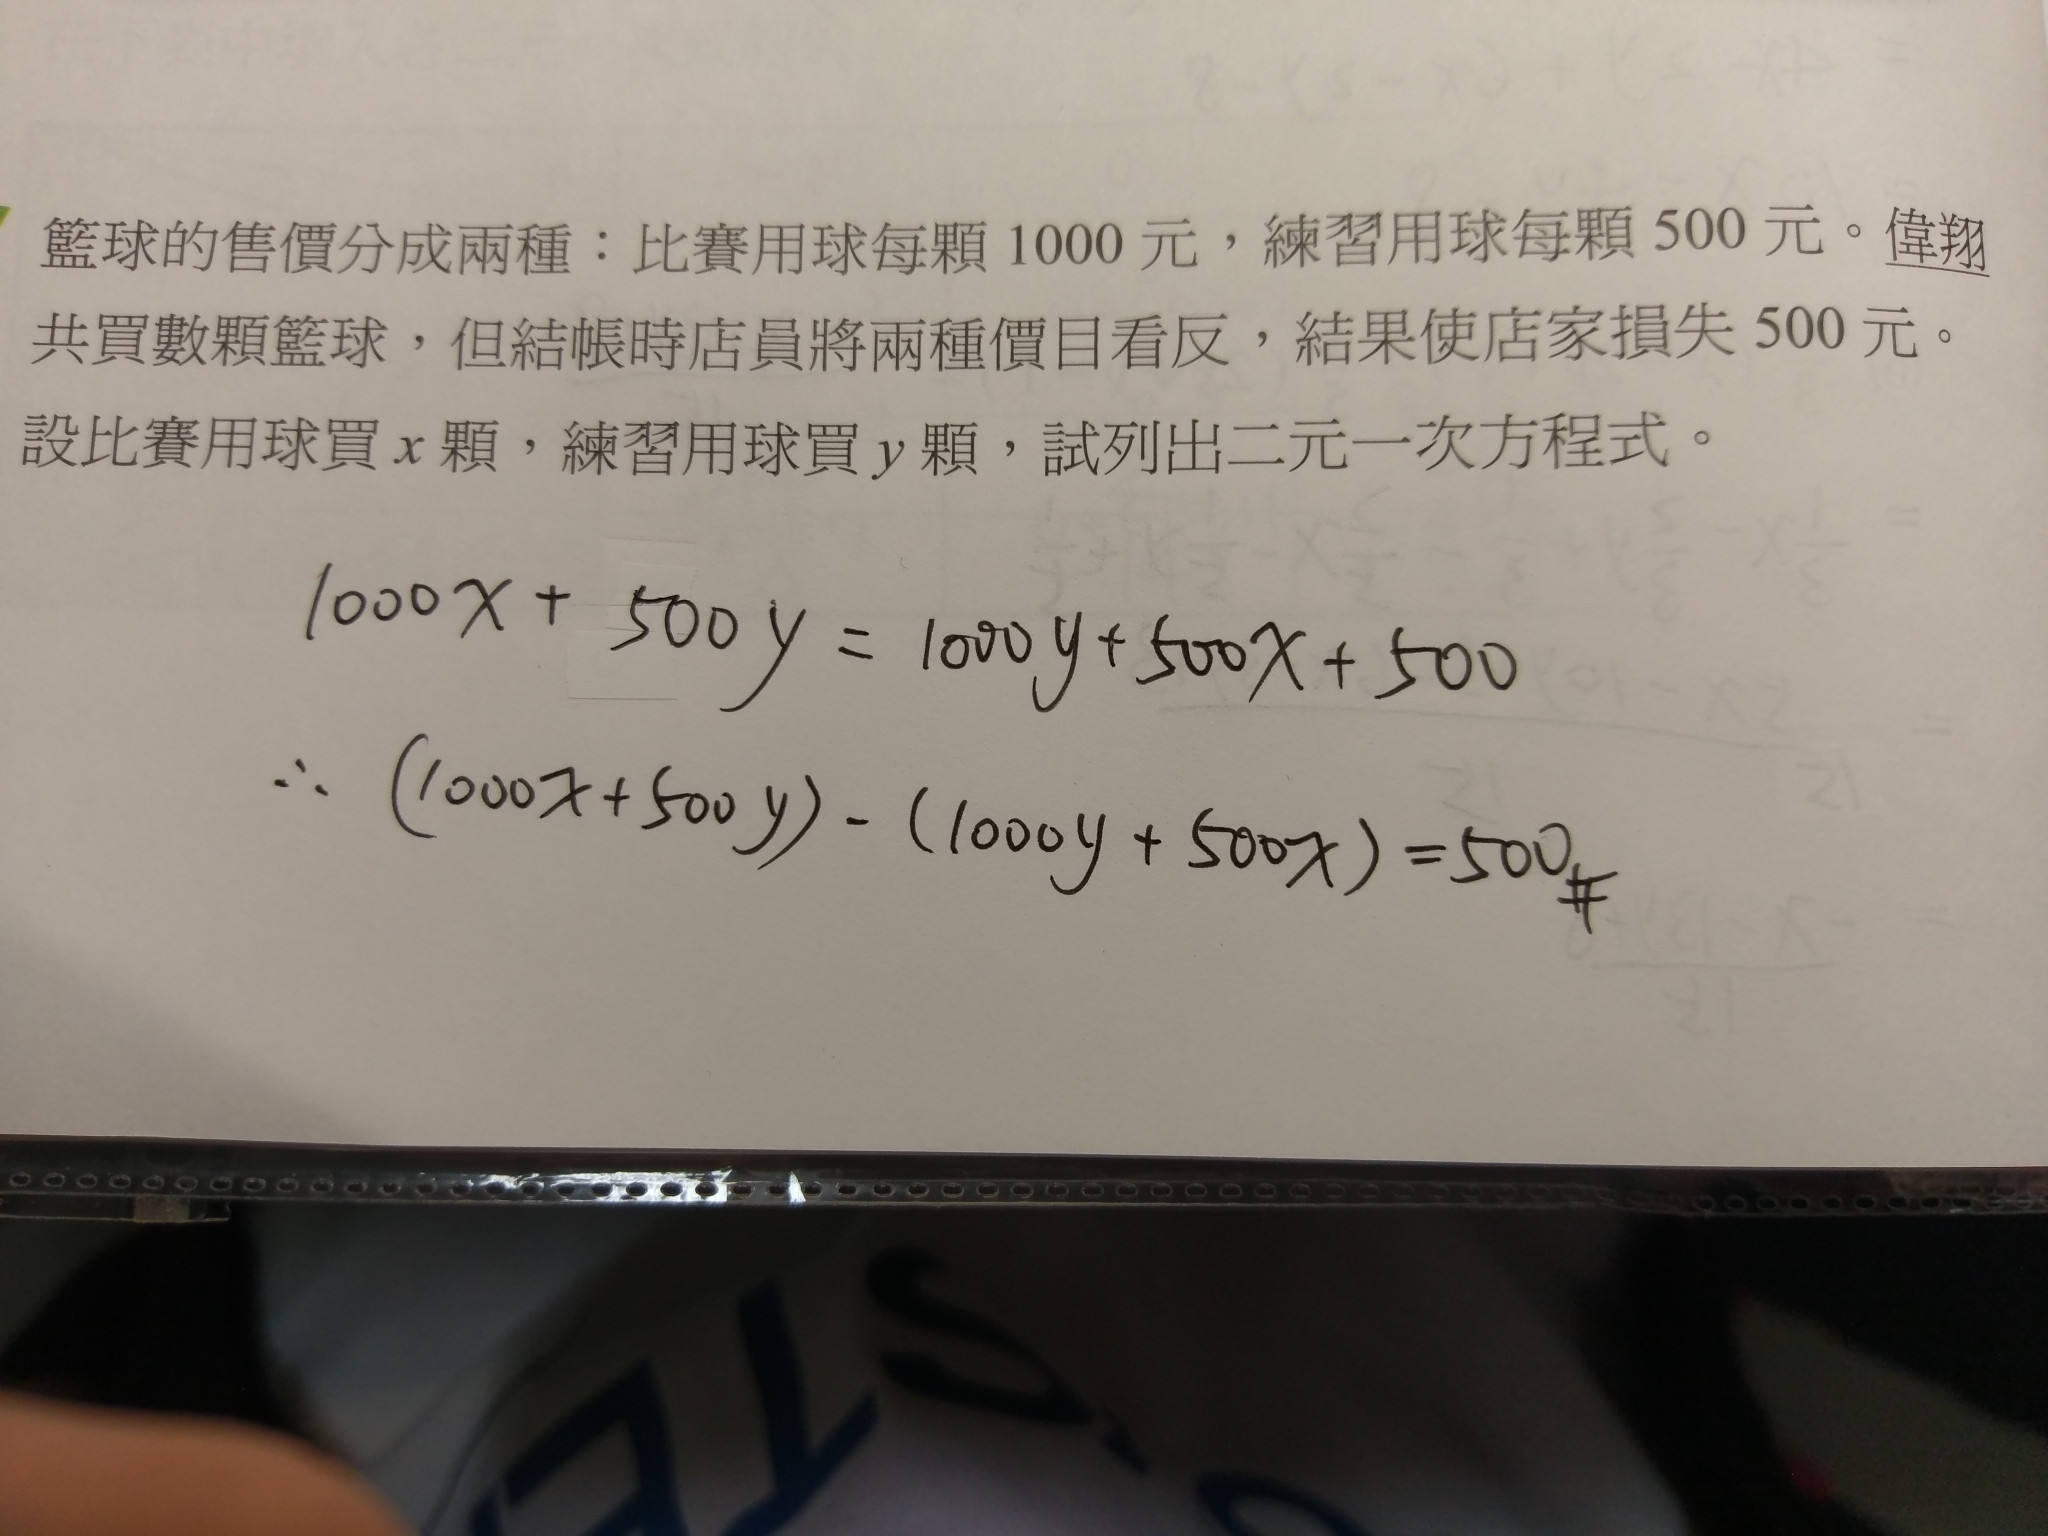 籃球的售價分成兩種：比賽用球每顆 1000 元，練習用球每顆 500 元。偉翔
共買數顆籃球，但結帳時店員將兩種價目看反，結果使店家損失 500 元。
設比賽用球買 x 顆，練習用球買 y 顆，試列出二元一次方程式。
1000x + 500y = 1000y + 500x + 500
∴ (1000x + 500y) - (1000y + 500x) = 500#